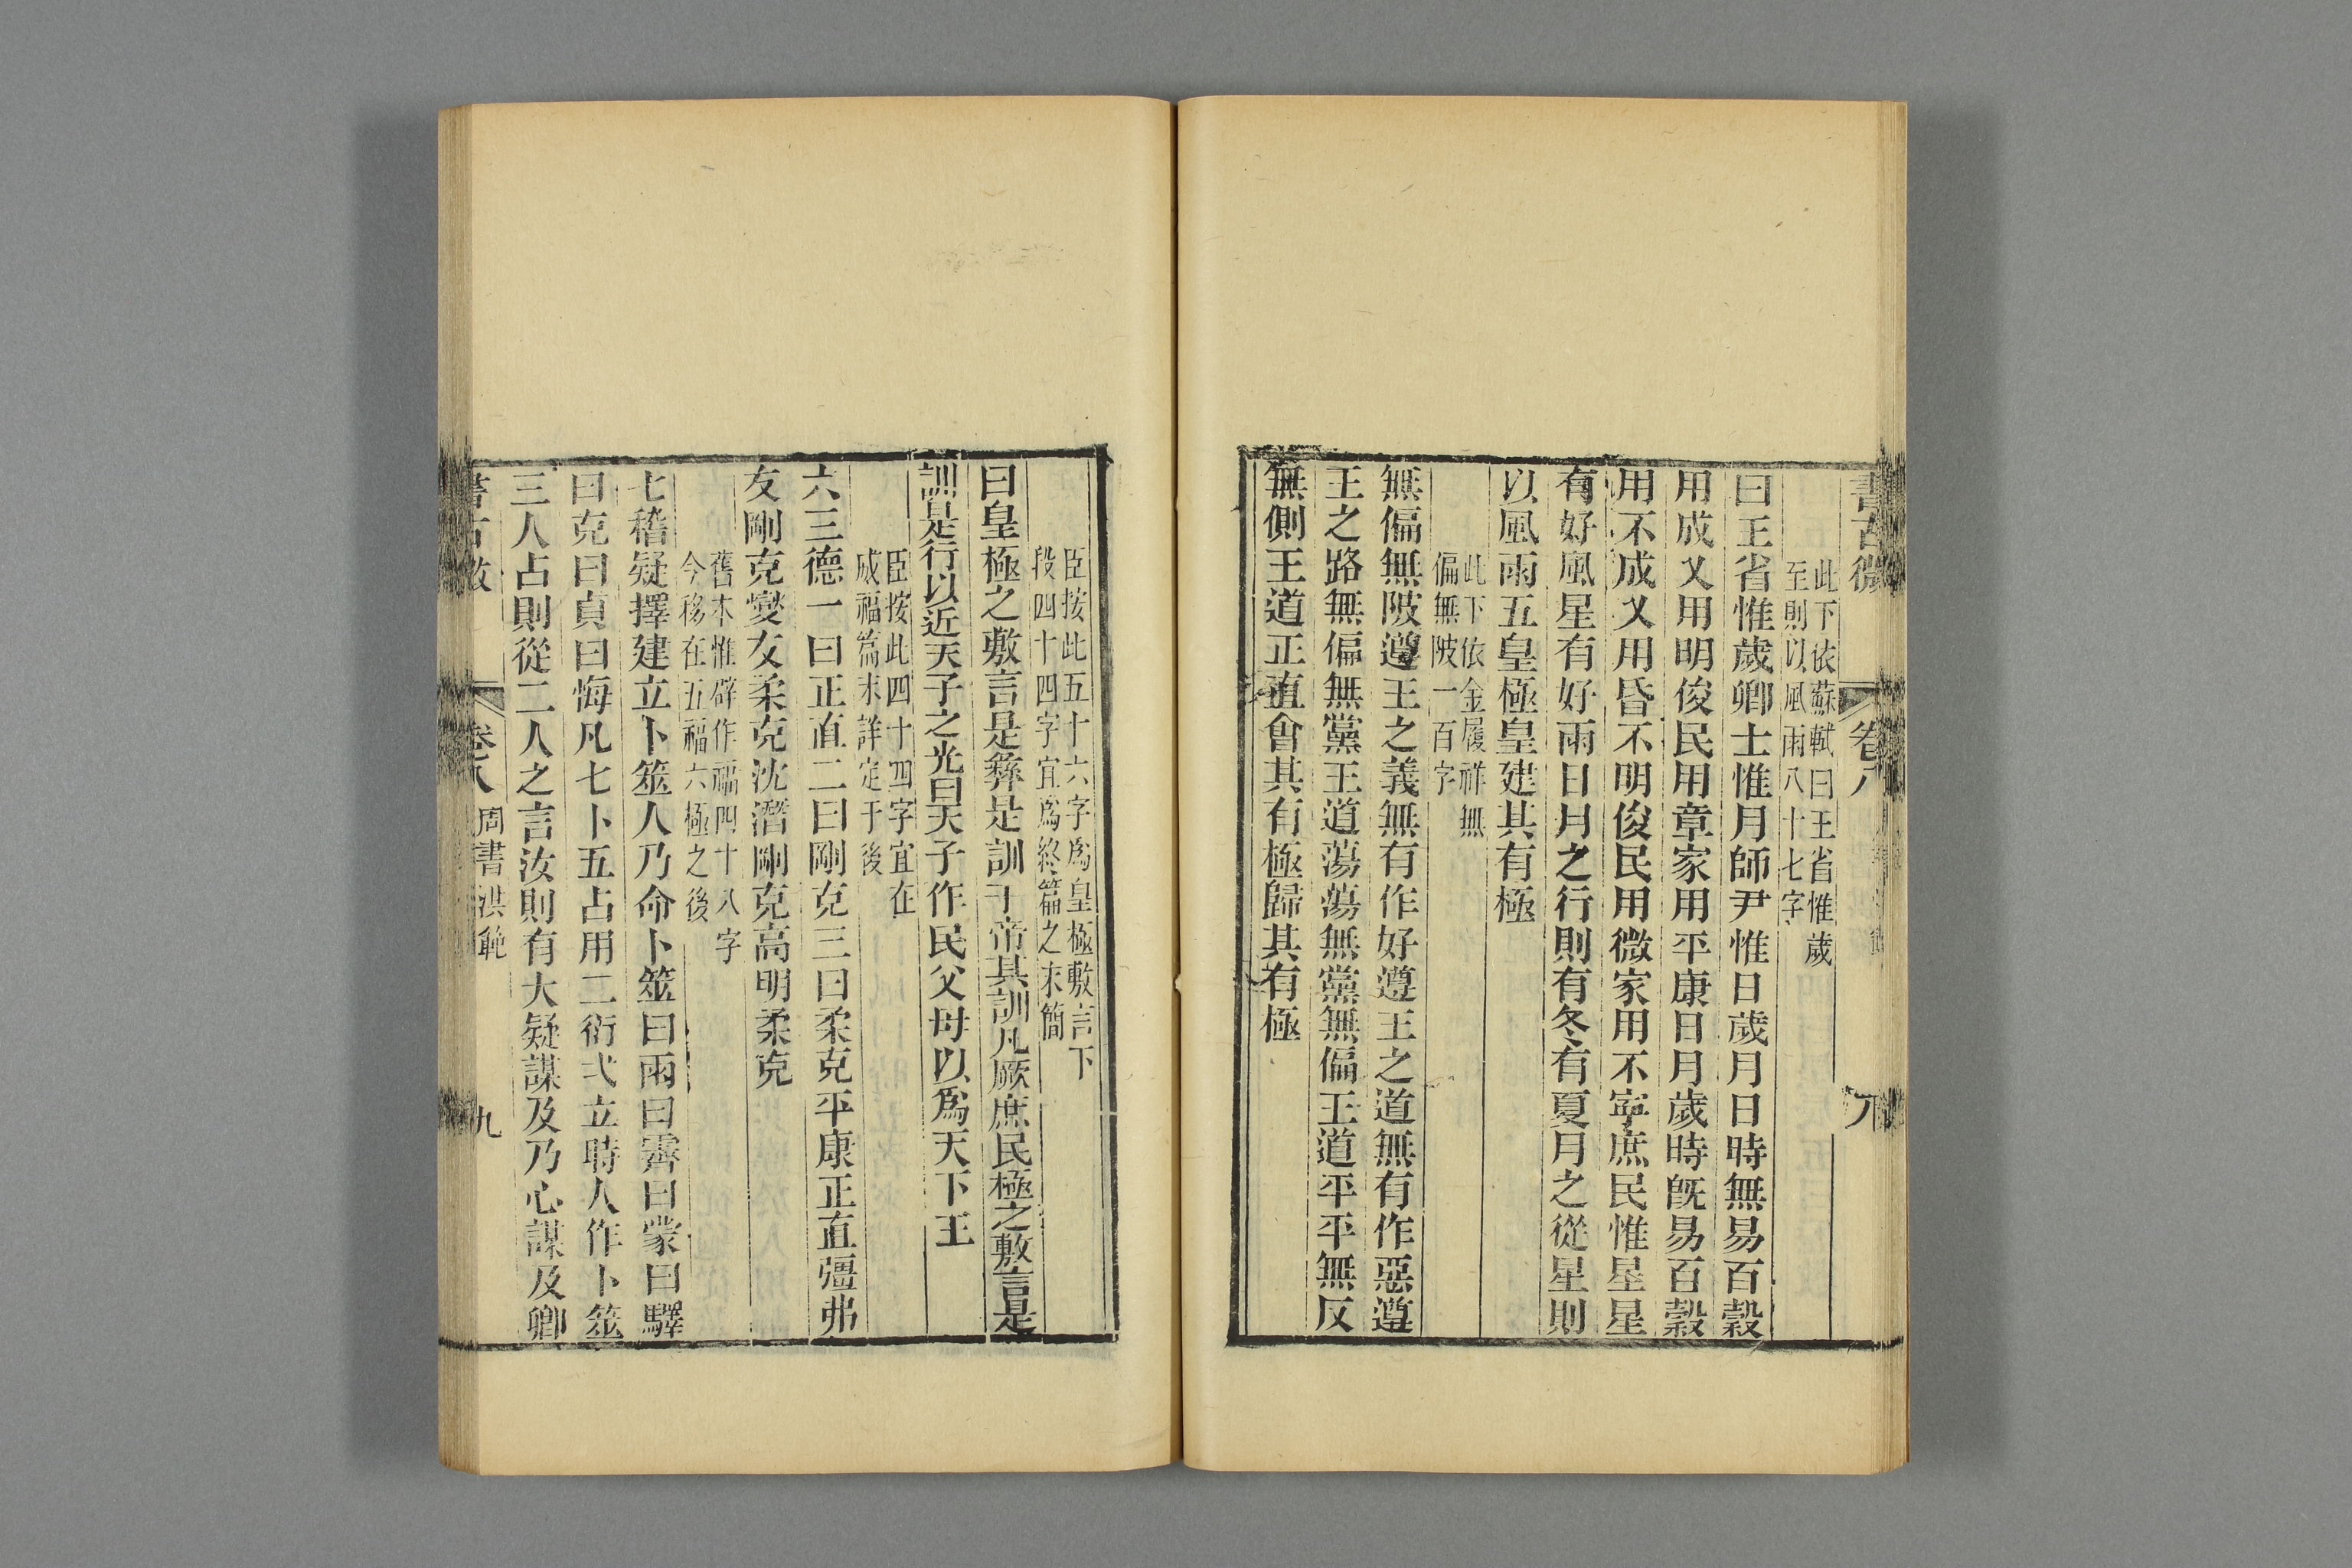 書古微 卷八 八
此下依蘇軾曰王省惟歲
至則以風雨八十七字
曰王省惟歲卿士惟月師尹惟日歲月日時無易百穀
用成乂用明俊民用章家用平康日月歲時旣易百穀
用不成乂用昏不明俊民用微家用不寧庶民惟星星
有好風星有好雨日月之行則有冬有夏月之從星則
以風雨五皇極皇建其有極
此下依金履祥無
偏無陂一百字
無偏無陂遵王之義無有作好遵王之道無有作惡遵
王之路無偏無黨王道蕩蕩無黨無偏王道平平無反
無側王道正直會其有極歸其有極
臣按此五十六字爲皇極敷言下
段四十四字宜爲終篇之末簡
曰皇極之敷言是彝是訓于帝其訓凡厥庶民極之敷言是
訓是行以近天子之光曰天子作民父母以爲天下王
臣按此四十四字宜在
威福篇末詳定于後
六三德一曰正直二曰剛克三曰柔克平康正直彊弗
友剛克燮友柔克沈潛剛克高明柔克
舊本惟辟作福四十八字
今移在五福六極之後
七稽疑擇建立卜筮人乃命卜筮曰雨曰霽曰蒙曰驛
曰克曰貞曰悔凡七卜五占用二衍忒立時人作卜筮
三人占則從二人之言汝則有大疑謀及乃心謀及卿
書古微 卷八 周書洪範 九